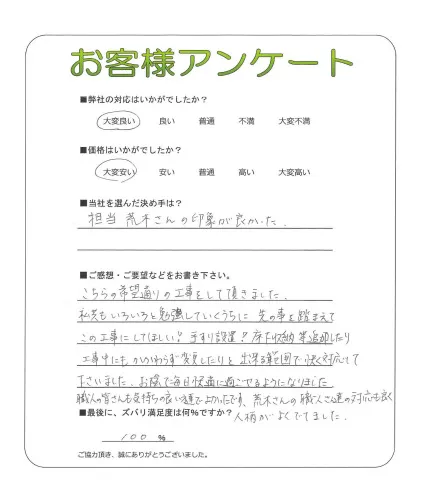 お客様アンケート
■弊社の対応はいかがでしたか?
大変良い 良い 普通 不満 大変不満
■価格はいかがでしたか?
大変安い 安い 普通 高い 大変高い
■当社を選んだ決め手は?
担当 荒木さんの印象が良かった.
■ご感想・ご要望などをお書き下さい。
こちらの希望通りの工事をして頂きました.
私共もいろいろと勉強していくうちに 先の事を踏まえて
この工事にしてほしい! 手すり設置! 床下収納 等追加したり
工事中にもかかわらず変更したりと 出来る範囲で快く対応して
下さいました. お陰で毎日快適に過ごせるようになりました
職人の皆さんも気持ちの良い 方でよかったです、荒木さんの職人さん達の対応も良く
人柄がよくでてました.
■最後に、ズバリ満足度は何%ですか?
100 %
ご協力頂き、誠にありがとうございました。